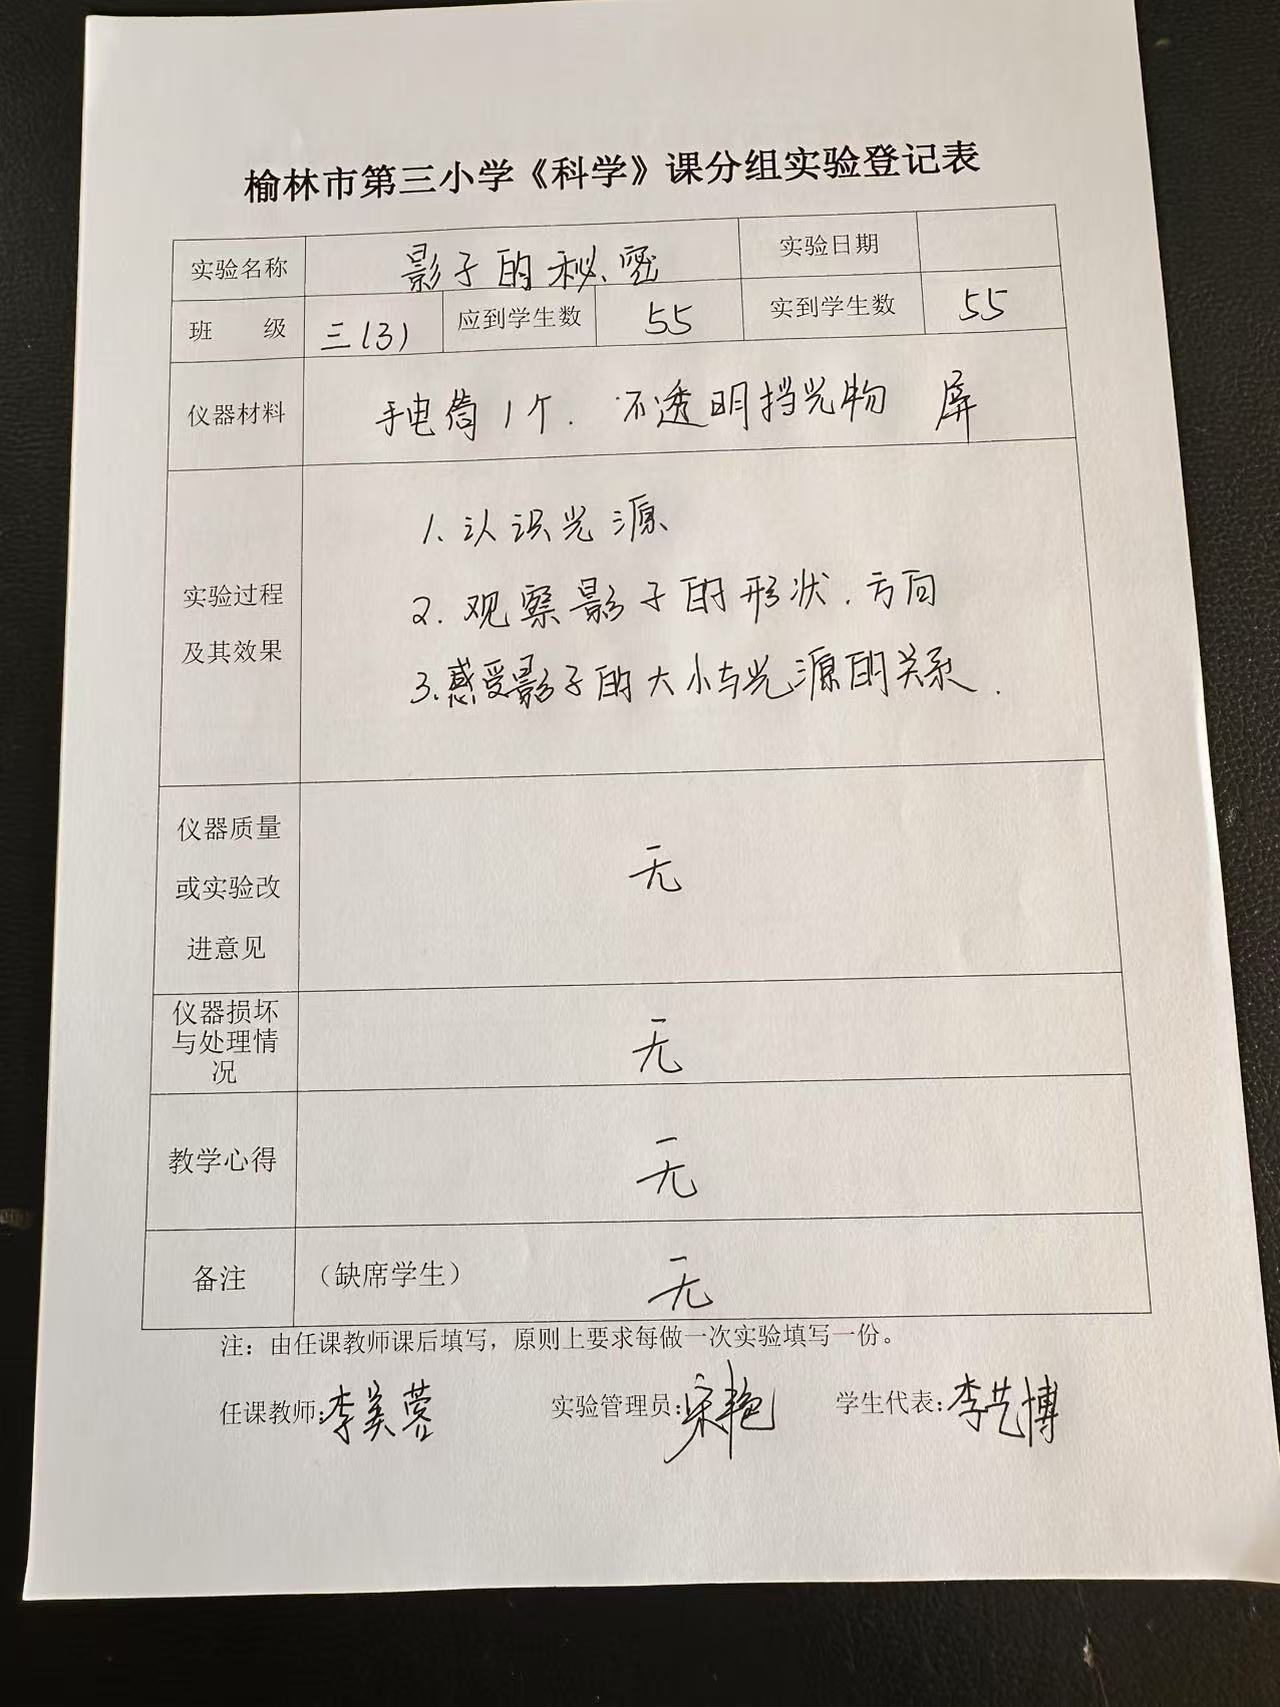 榆林市第三小学《科学》课分组实验登记表
实验名称 影子的秘密 实验日期
班 级 三(3) 应到学生数 55 实到学生数 55
仪器材料 手电筒1个. 不透明挡光物 屏
1. 认识光源
2. 观察影子的形状.方向
实验过程
及其效果
3. 感受影子的大小与光源的关系.
仪器质量
或实验改
进意见
无
仪器损坏
与处理情
况
无
教学心得 无
备注 (缺席学生) 无
注：由任课教师课后填写，原则上要求每做一次实验填写一份。
任课教师:李美蓉 实验管理员:宋艳 学生代表:李艺博